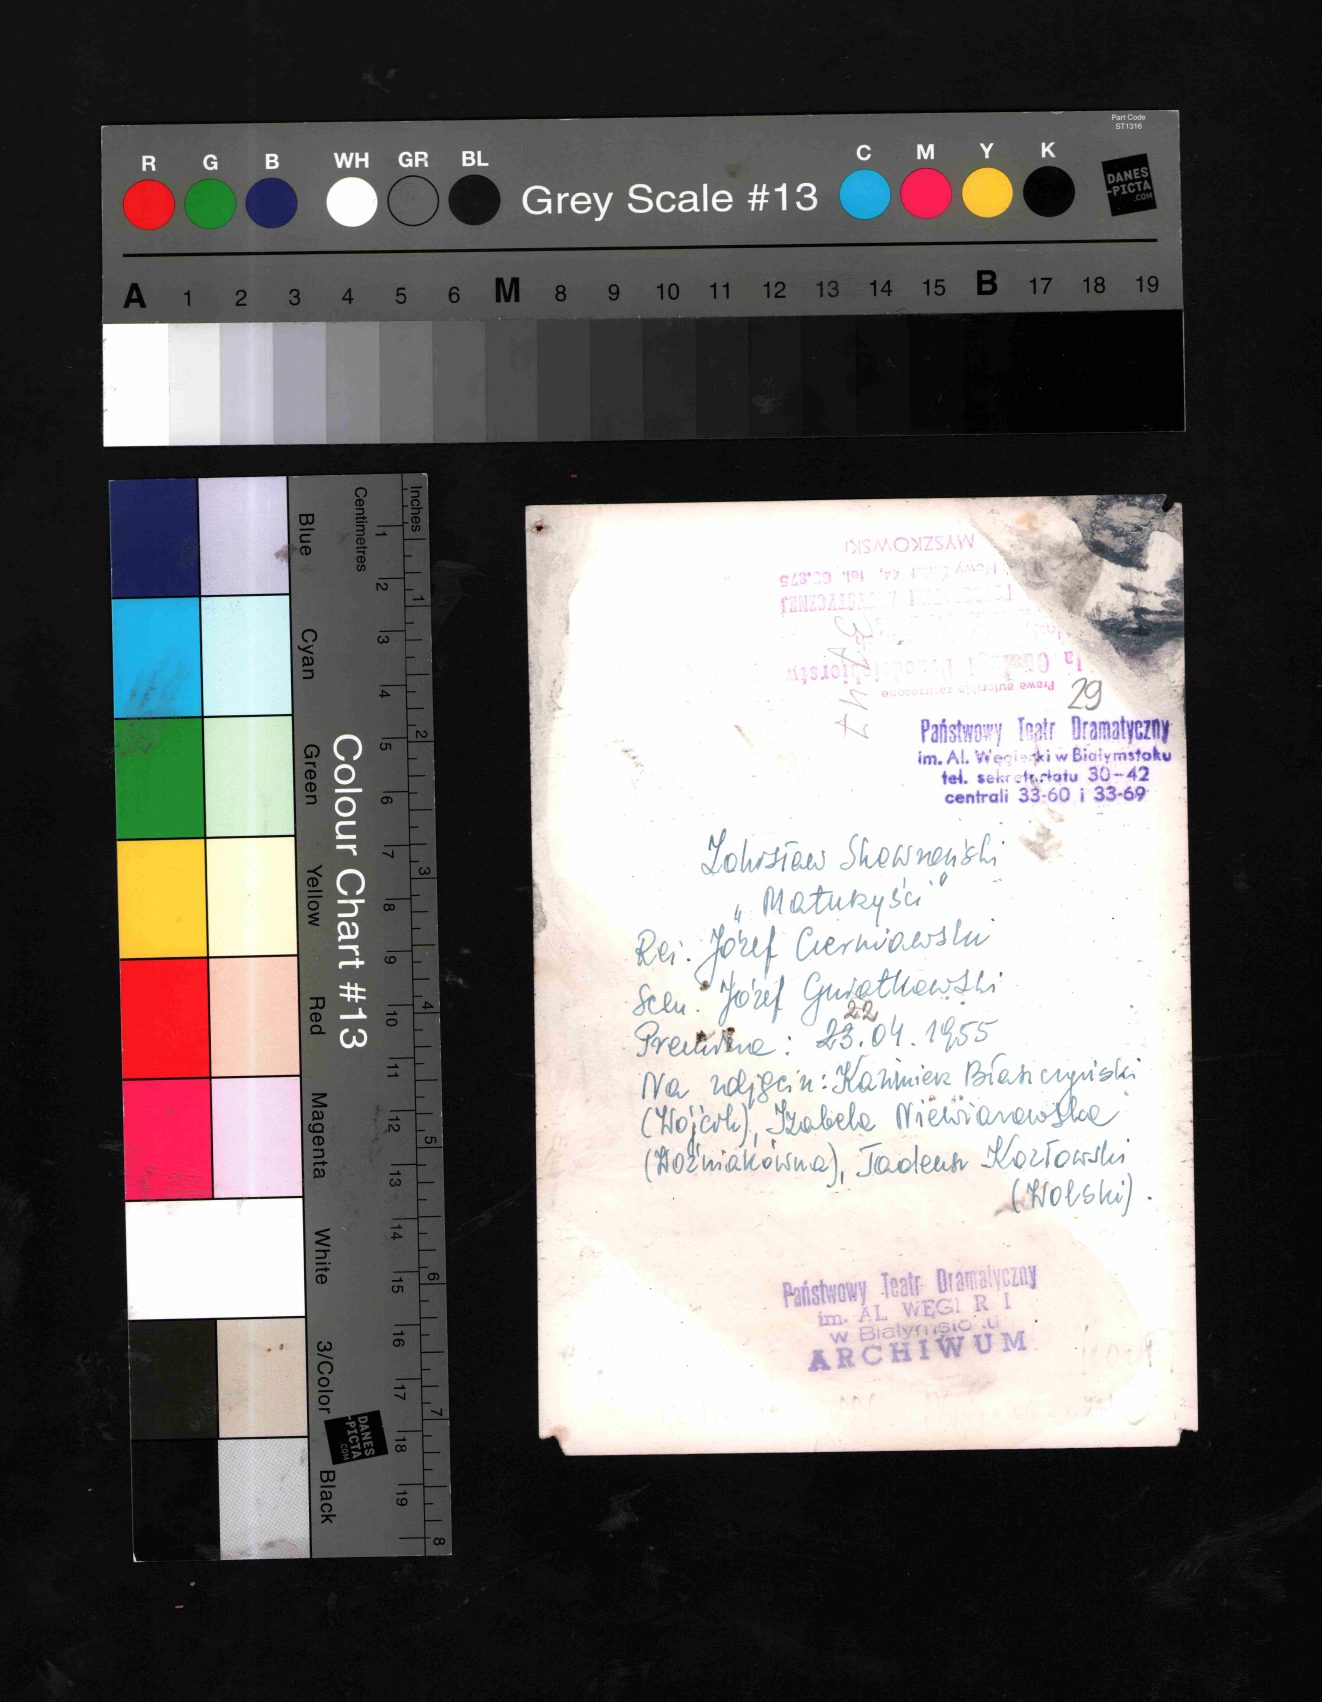 Part Code
ST1316
R G B WH GR BL Grey Scale #13 C M Y K
DANES
-PICTA
.COM
A 1 2 3 4 5 6 M 8 9 10 11 12 13 14 15 B 17 18 19
Colour Chart #13
Blue
Cyan
Green
Yellow
Red
Magenta
White
3/Color
Black
Centimetres
1 2 3 4 5 6 7 8 9 10 11 12 13 14 15 16 17 18 19
Inches
1 2 3 4 5 6 7 8
DANES
-PICTA
.COM
MYSZKOWSKI
Nowy Świat tel.
Prawa autorskie zastrzeżone
29
Państwowy Teatr Dramatyczny
im. Al. Węgierki w Białymstoku
tel. sekretariatu 30-42
centrali 33-60 i 33-69
Zdzisław Skowroński
„Maturzyści"
Reż. Józef Czerniawski
Scen. Józef Gwiatkowski
22
Premiera: 23.04.1955
Na zdjęciu: Kazimierz Błaszczyński
(Wójcik), Izabela Niewiarowska
(Woźniakówna), Tadeusz Kozłowski
(Wolski).
Państwowy Teatr Dramatyczny
im. AL WĘGI R I
w Białymsto u
ARCHIWUM